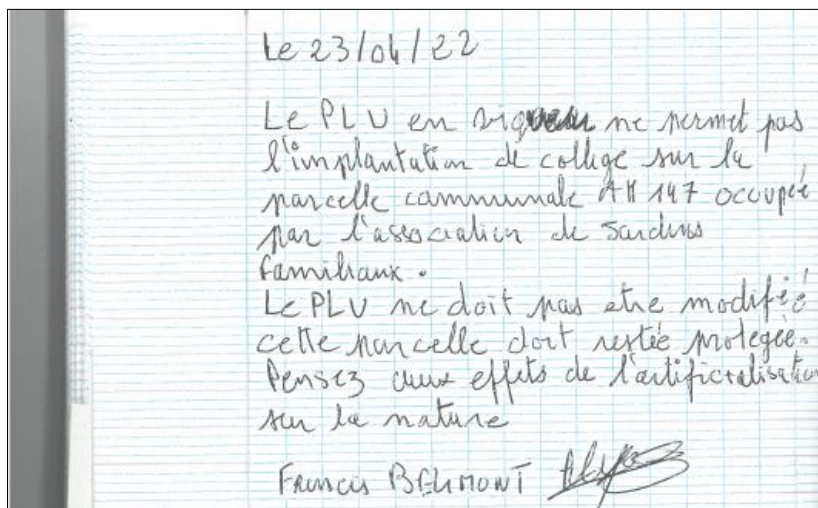 Le 23/04/22
Le PLU en vigueur ne permet pas
l'implantation de collège sur la
parcelle communale AH 147 ocupée
par l'association de Jardins
familiaux.
Le PLU ne doit pas etre modifié
cette parcelle doit restée protegée.
Pensez aux effets de l'artificialisation
sur la nature
Francis BELMONT